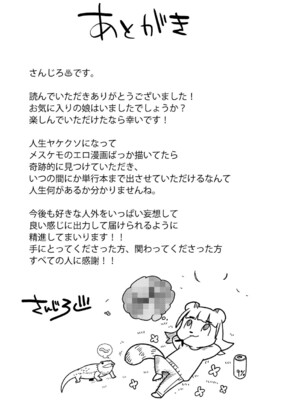 あとがき
さんじろ♨です。
読んでいただきありがとうございました！
お気に入りの娘はいましたでしょうか？
楽しんでいただけたなら幸いです！
人生ヤケクソになって
メスケモのエロ漫画ばっか描いてたら
奇跡的に見つけていただき、
いつの間にか単行本まで出させていただけるなんて
人生何があるか分かりませんね。
今後も好きな人外をいっぱい妄想して
良い感じに出力して届けられるように
精進してまいります！！
手にとってくださった方、関わってくださった方
すべての人に感謝！！
さんじろ♨